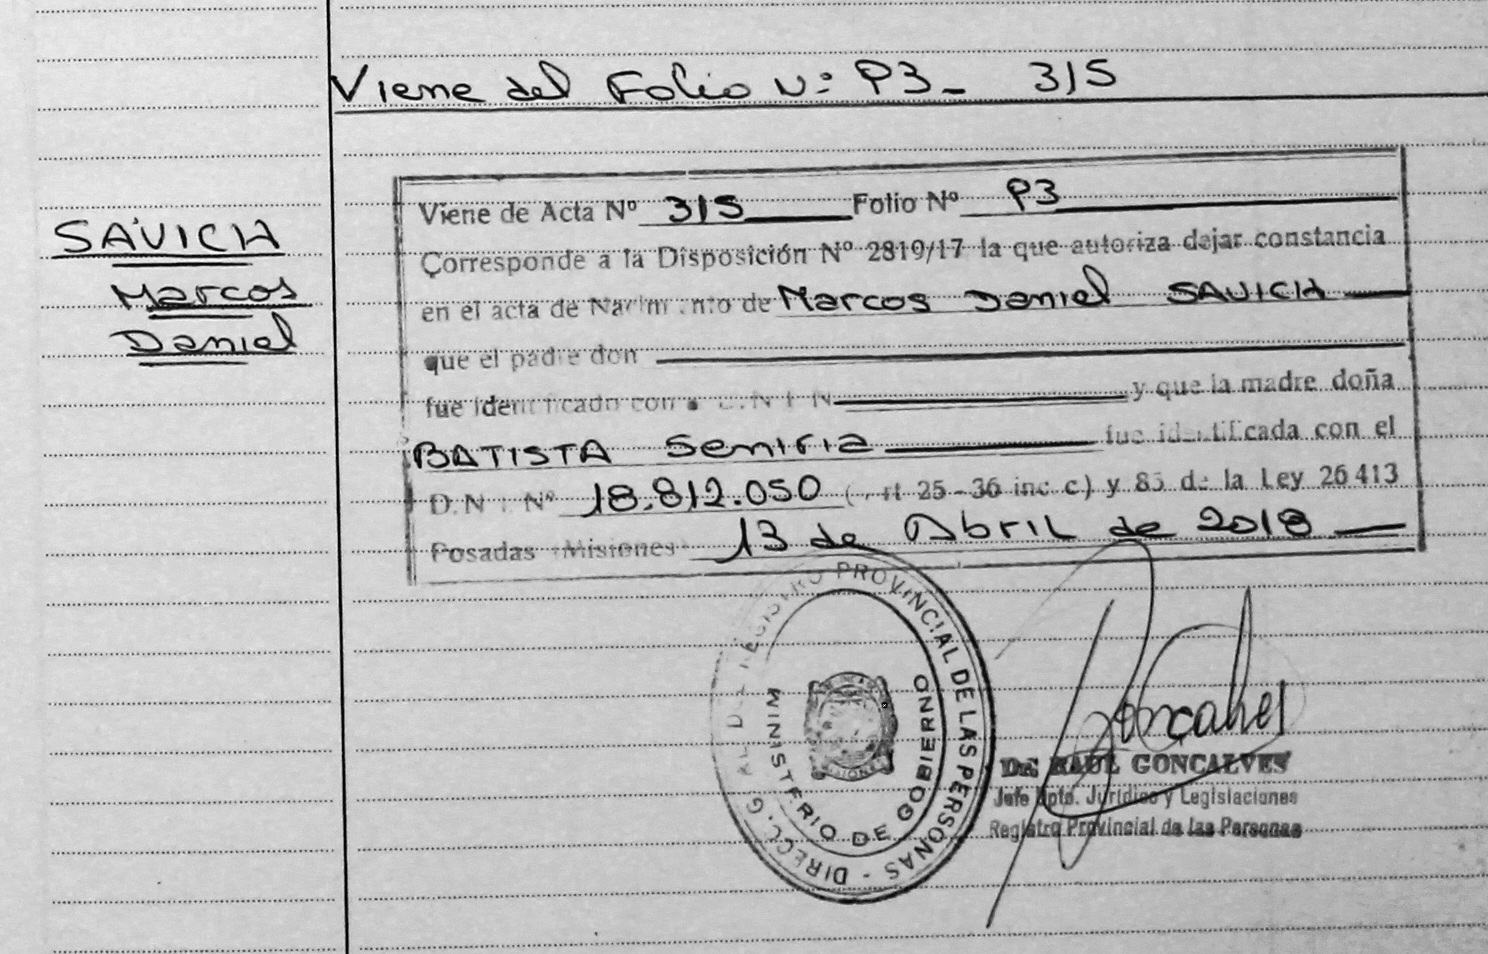 Viene del Folio Nº P3_ 315
SAVICH
Marcos
Daniel
Viene de Acta Nº 315 Folio Nº P3
Corresponde a la Disposición Nº 2819/17 la que autoriza dejar constancia
en el acta de Nacimiento de Marcos Daniel SAVICH
que el padre don
fue identificado con D.N.I. N y que la madre doña
BATISTA Seniria fue identificada con el
D.N.I. Nº 18.812.050 (Art 25-36 inc c) y 85 de la Ley 26413
Posadas (Misiones) 13 de Abril de 2018
DIRECC. GRAL DEL REGISTRO PROVINCIAL DE LAS PERSONAS -
MINISTERIO DE GOBIERNO
MISIONES
Goncalves
Dr. RAUL GONCALVES
Jefe Dpto. Jurídico y Legislaciones
Registro Provincial de las Personas